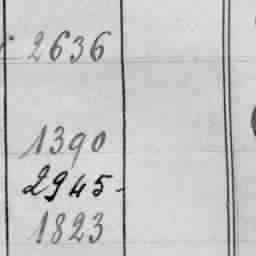 2636
1390
2945-
1823